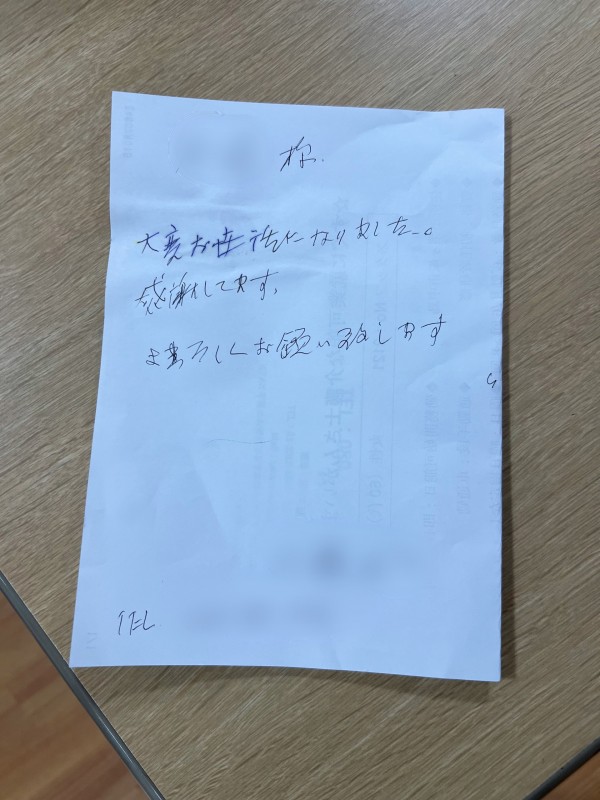 様
大変お世話になりました。
感謝してます。
よろしくお願い致します